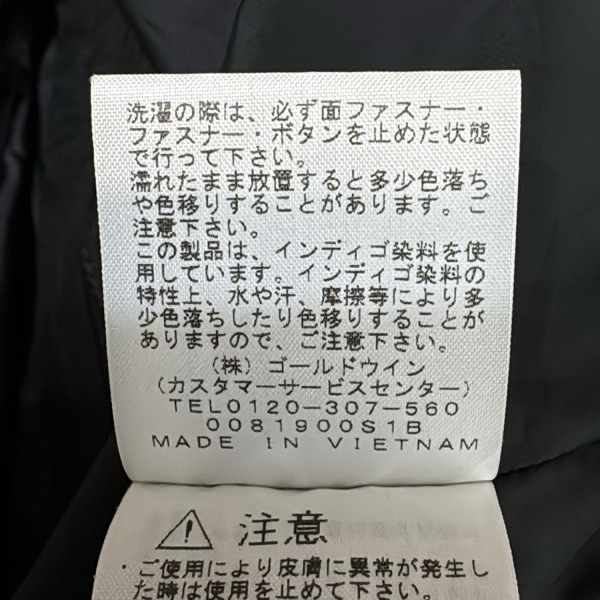 洗濯の際は、必ず面ファスナー・
ファスナー・ボタンを止めた状態
で行って下さい。
濡れたまま放置すると多少色落ち
や色移りすることがあります。ご
注意下さい。
この製品は、インディゴ染料を使
用しています。インディゴ染料の
特性上、水や汗、摩擦等により多
少色落ちしたり色移りすることが
ありますので、ご注意下さい。
（株）ゴールドウイン
（カスタマーサービスセンター）
TEL0120-307-560
0081900S1B
MADE IN VIETNAM
注意
・ご使用により皮膚に異常が発生し
た時は使用を止めて下さい。